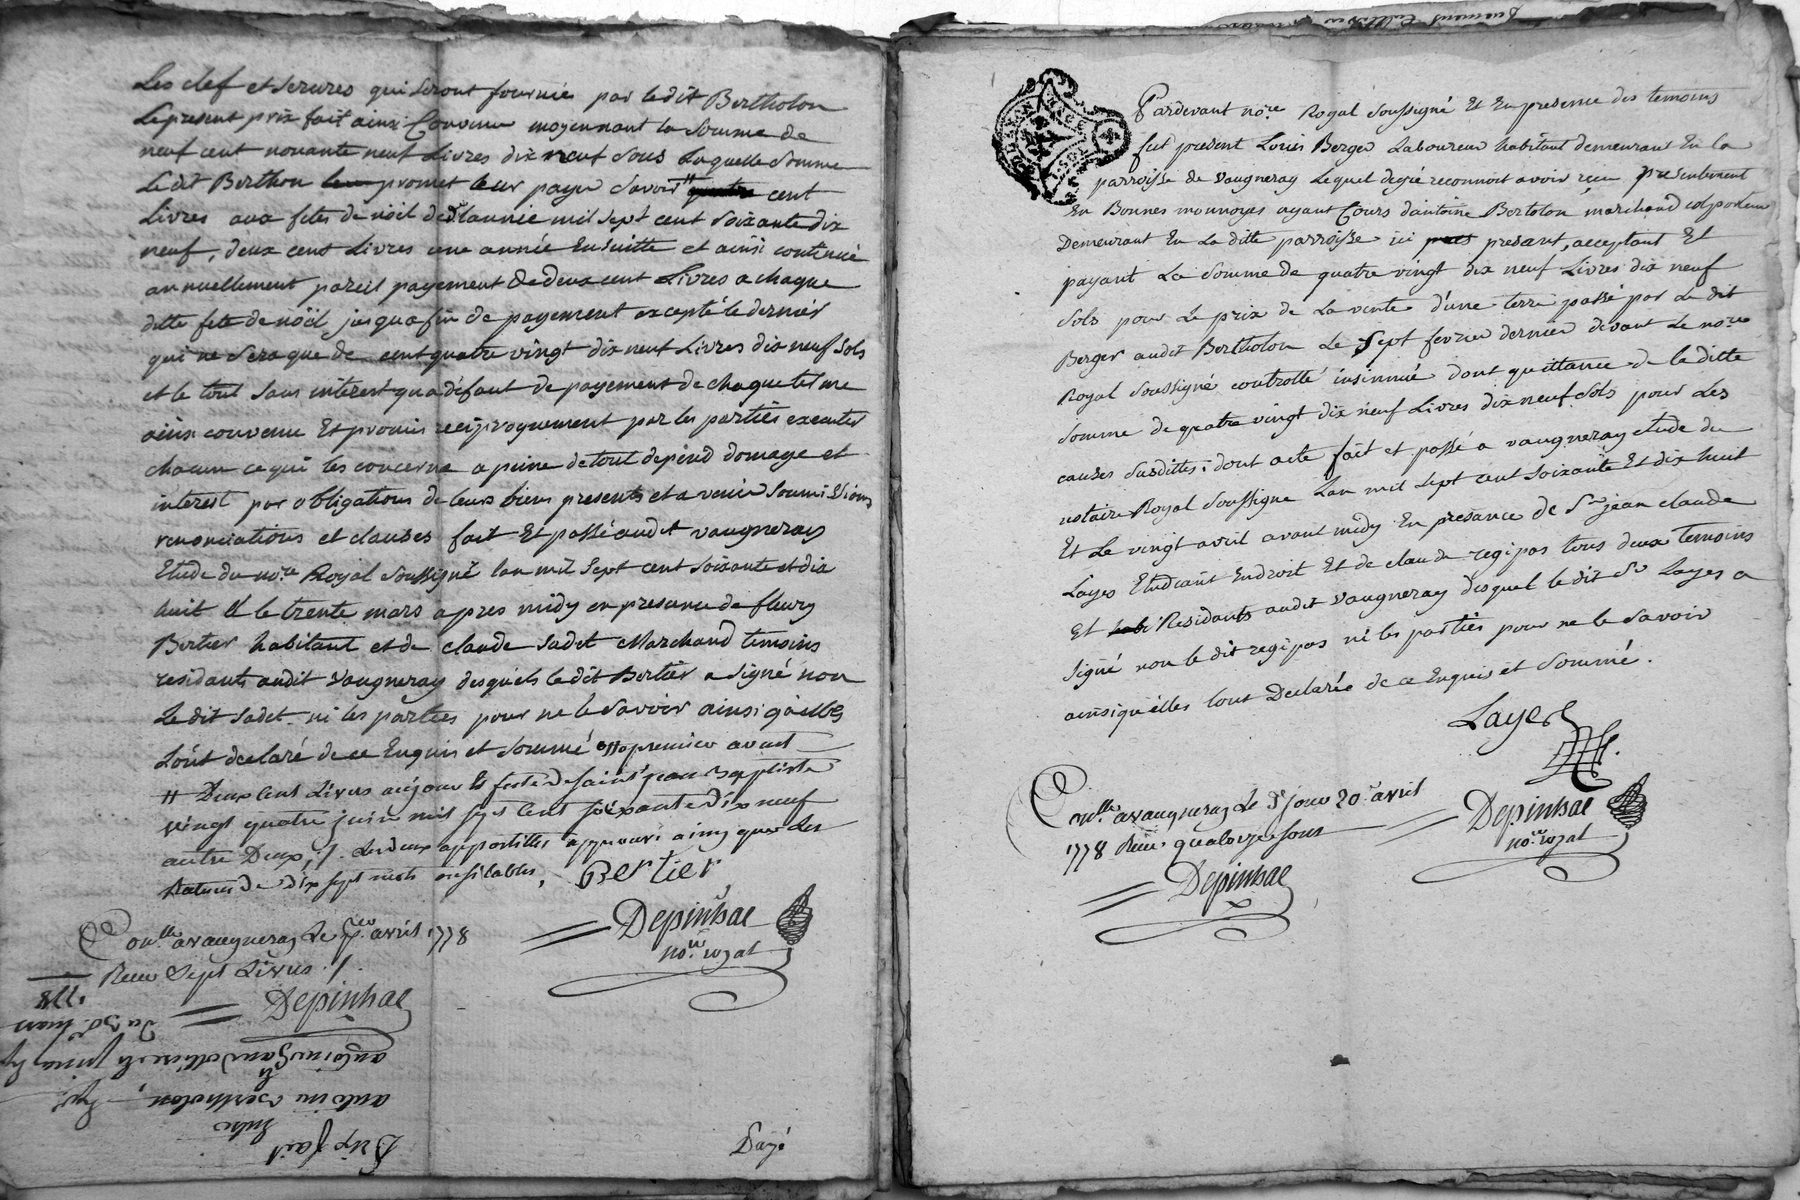 Les clef et serures qui seront fournie par ledit Bertholon
Le present prix fait ainsi Convenu moyennant la Somme de
neuf cent nonante neuf Livres dix neuf sous Laquelle Somme
Le dit Berthon promet leur payer Savoir cent
Livres aux fetes de nöel de Lannee mil sept cent soixante dix
neuf, deux cent Livres une année Ensuitte et ainsi continué
annuellement pareil payement de deux cent Livres a chaque
ditte fete de nöel jusqua fin de payement excepté le dernier
qui ne sera que de cent quatre vingt dix neuf Livres dix neuf sols
et le tout sans interest qua défaut de payement de chaque terme
ainsi convenu Et promis reciproquement par les parties executer
chacun ce qui les concerne a peine de tout depend domage et
interest par obligations de leurs biens presents et a venir soumissions
renonciations et clauses fait Et passé audit vaugneray
Etude du no.re Royal soussigné lan mil sept cent soixante et dix
huit & le trente mars apres midy en presance de fleury
Bertier habitant et de claude sadet Marchand temoins
residants audit vaugneray desquels le dit Bertier a signé non
Le dit sadet ni les parties pour ne le savoir ainsi qu'elles
L'ont declaré de ce Enquis et sommé
" Deux Cent Livres aujour & feste de saint jean Baptiste
vingt quatre juin mil sept cent soixante dix neuf
autre Deux, /. Les deux appostilles approuvé ainsy que Les
Ratures de dix sept mots
Bertier
Con.lle a vaugneray Le p.er avril 1778
Reçu Sept Livres ./.
Depinhac
Depinhac
no.re royal
1778
Du 30e mars
antoine Bertholon,
Entre
Prix fait
Payé
Pardevant no.re Royal soussigné Et En presence des temoins
fut present Louis Berger Laboureur habitant demeurant En la
parroisse de vaugneray Lequel degré reconnoit avoir reçu presentement
En Bonnes monnoyes ayant Cours d'antoine Bertolon marchand colporteur
Demeurant En La ditte parroisse ici present, acceptant Et
payant La Somme de quatre vingt dix neuf Livres dix neuf
Sols pour Le prix de La vente d'une terre passé par Le dit
Berger audit Bertholon Le Sept fevrier dernier devant Le no.re
Royal Soussigné controllé insinué dont quittance de la ditte
Somme de quatre vingt dix neuf Livres dix neuf Sols pour Les
causes susdittes; dont acte fait et passé a vaugneray etude du
notaire Royal Soussigne Lan mil Sept cent Soixante Et dix huit
Et Le vingt avril avant midy En presance de S.r jean claude
Layes Etudiant En droit Et de claude regipas tous deux temoins
Et Residants audit vaugneray desquel le dit Sr Layes a
Signé non le dit regipas ni les parties pour ne le savoir
ainsi qu'elles l'ont Declaré de ce Enquis et Sommé.
Layes
Con.lle a vaugneray Le d. jour 20.e avril
1778 Reçu quatorze sous
Depinhac
Depinhac
no.re royal